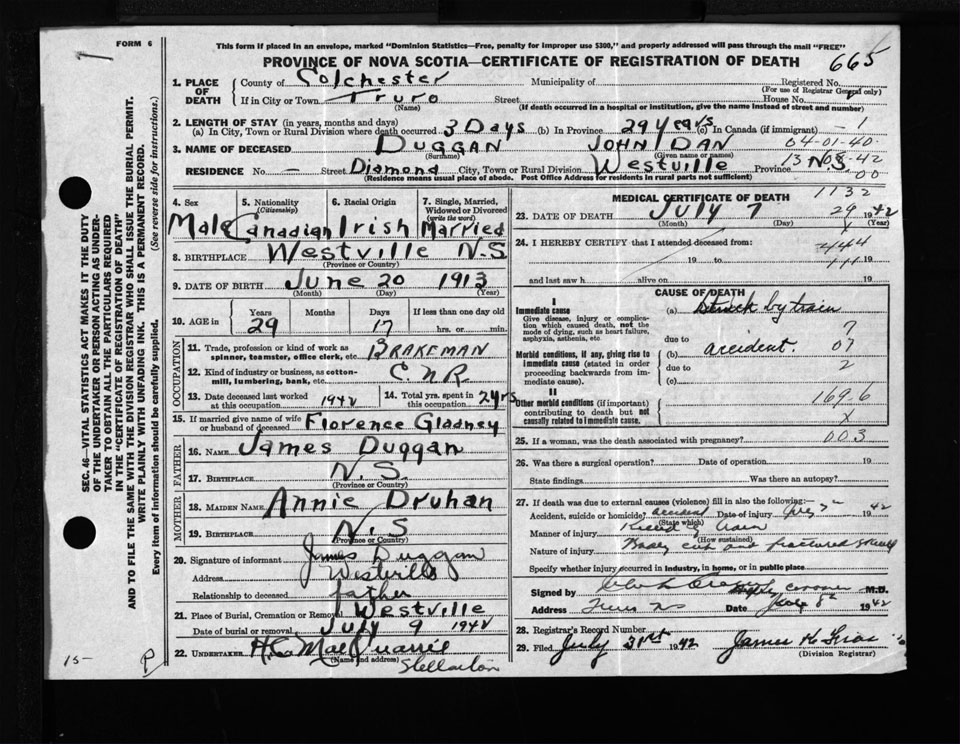 FORM 6
This form if placed in an envelope, marked "Dominion Statistics—Free, penalty for improper use $300," and properly addressed will pass through the mail "FREE"
PROVINCE OF NOVA SCOTIA—CERTIFICATE OF REGISTRATION OF DEATH
665
1. PLACE OF DEATH
County of Colchester Municipality of Registered No.
(For use of Registrar General only)
If in City or Town Truro Street House No.
(Name) (If death occurred in a hospital or institution, give the name instead of street and number)
2. LENGTH OF STAY (in years, months and days)
(a) In City, Town or Rural Division where death occurred 3 Days (b) In Province 29 Years (c) In Canada (if immigrant) 1
3. NAME OF DECEASED DUGGAN JOHN DAN
(Surname) (Given name or names)
04-01-40-
13 08-42
RESIDENCE No — Street Diamond City, Town or Rural Division Westville Province N.S.
(Residence means usual place of abode. Post Office Address for residents in rural parts not sufficient)
00
1132
4. Sex 5. Nationality (Citizenship) 6. Racial Origin 7. Single, Married, Widowed or Divorced (write the word)
Male Canadian Irish Married
8. BIRTHPLACE Westville N.S
(Province or Country)
9. DATE OF BIRTH June 20 1913
(Month) (Day) (Year)
10. AGE in Years Months Days If less than one day old
29 17 hrs. or min.
OCCUPATION
11. Trade, profession or kind of work as spinner, teamster, office clerk, etc. BRAKEMAN
12. Kind of industry or business, as cotton-mill, lumbering, bank, etc. CNR
13. Date deceased last worked at this occupation 1942 14. Total yrs. spent in this occupation 2 yrs
15. If married give name of wife or husband of deceased Florence Gladney
FATHER
16. NAME James Duggan
17. BIRTHPLACE N.S.
(Province or Country)
MOTHER
18. MAIDEN NAME Annie Druhan
19. BIRTHPLACE N.S
(Province or Country)
20. Signature of informant James Duggan
Address Westville
Relationship to deceased father
21. Place of Burial, Cremation or Removal Westville
Date of burial or removal July 9 1942
22. UNDERTAKER H.C. MacQuarrie
(Name and address) Stellarton
MEDICAL CERTIFICATE OF DEATH
23. DATE OF DEATH July 7 1942
(Month) (Day) (Year)
29
24. I HEREBY CERTIFY that I attended deceased from:
19 to 19
and last saw h alive on 19
444
CAUSE OF DEATH
I
Immediate cause
Give disease, injury or complication which caused death, not the mode of dying, such as heart failure, asphyxia, asthenia, etc.
(a) Struck by train
due to 7
Morbid conditions, if any, giving rise to immediate cause (stated in order proceeding backwards from immediate cause).
(b) accident. 07
due to 2
(c)
II
Other morbid conditions (if important) contributing to death but not causally related to immediate cause.
169.6
X
25. If a woman, was the death associated with pregnancy? 003
26. Was there a surgical operation? Date of operation 19
State findings Was there an autopsy?
27. If death was due to external causes (violence) fill in also the following:—
Accident, suicide or homicide? accident Date of injury July 7 1942
(State which)
Manner of injury
(How sustained)
Nature of injury Body cut and fractured skull
Specify whether injury occurred in Industry, in home, or in public place
Signed by coroner M.D.
Address Truro NS Date July 8th 1942
28. Registrar's Record Number
29. Filed July 31st 1942 James
(Division Registrar)
SEC. 46—VITAL STATISTICS ACT MAKES IT THE DUTY
OF THE UNDERTAKER OR PERSON ACTING AS UNDER-
TAKER TO OBTAIN ALL THE PARTICULARS REQUIRED
IN THE "CERTIFICATE OF REGISTRATION OF DEATH"
AND TO FILE THE SAME WITH THE DIVISION REGISTRAR WHO SHALL ISSUE THE BURIAL PERMIT.
WRITE PLAINLY WITH UNFADING INK. THIS IS A PERMANENT RECORD.
Every item of information should be carefully supplied. (See reverse side for instructions.)
15-
P